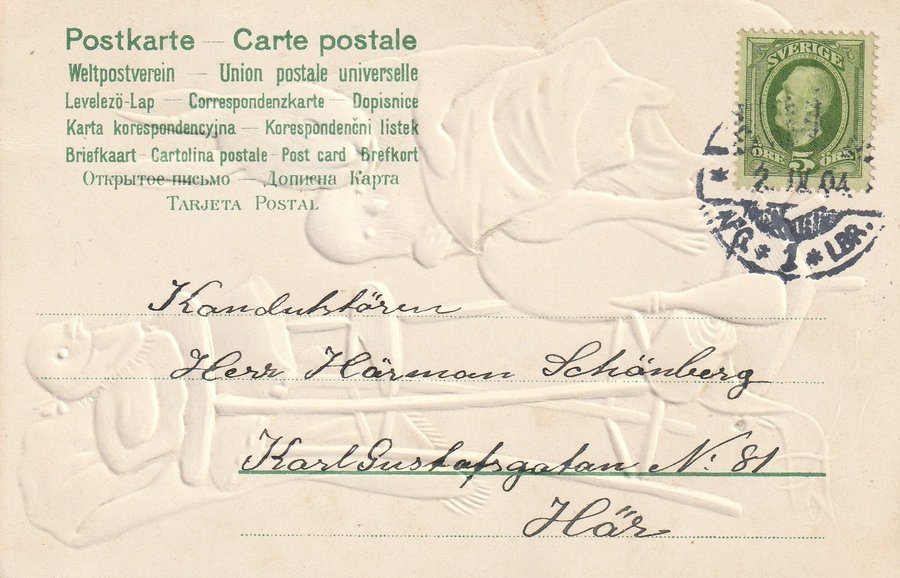 Postkarte — Carte postale
Weltpostverein — Union postale universelle
Levelező-Lap — Correspondenzkarte — Dopisnice
Karta korespondencyjna — Korespondenčni listek
Briefkaart - Cartolina postale - Post card - Brefkort
Открытое письмо — Дописна Карта
Tarjeta Postal
SVERIGE
ÖRE 5 ÖRE
2. IX. 04
* 1 * LBR.
Konduktören
Herr Härman Schönberg
Karl Gustafsgatan N: 81
Här